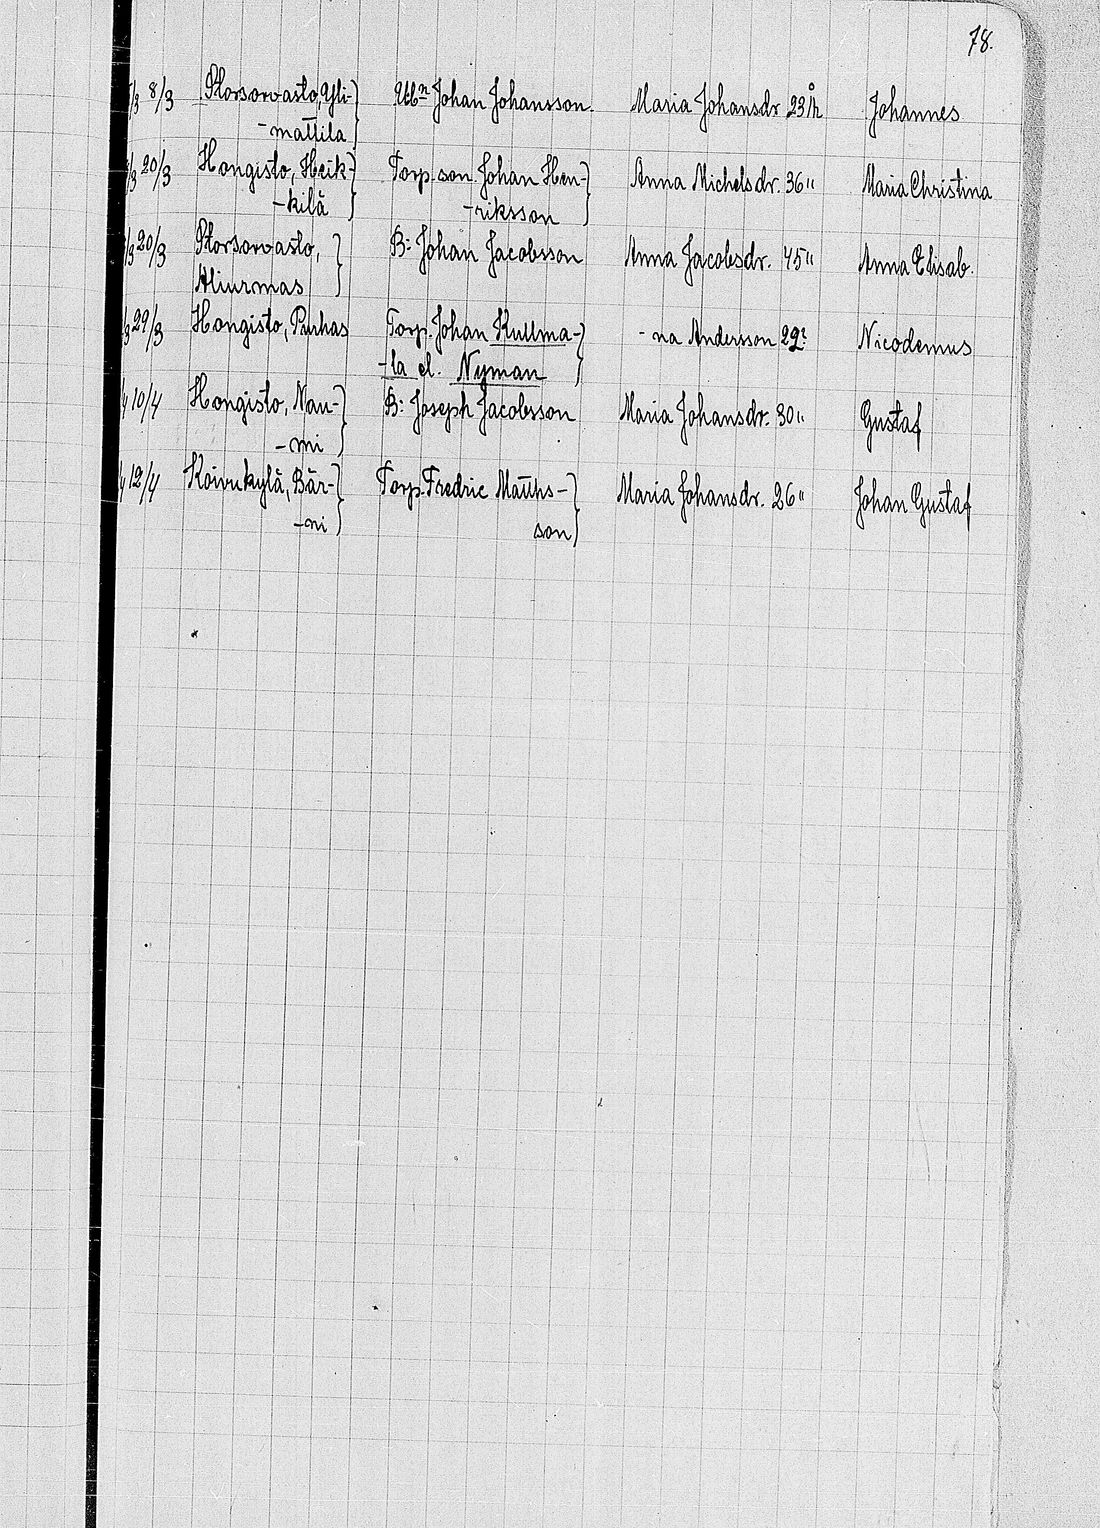 78.
/3 8/3 Storsorvasto, Yli- Utbn Johan Johansson. Maria Johansdr 23 år Johannes
-mattila
/3 20/3 Hongisto, Heik- Torp.son Johan Hen- Anna Michelsdr. 36 " Maria Christina
-kilä -riksson
/3 20/3 Storsorvasto, B: Johan Jacobsson Anna Jacobsdr. 45 " Anna Elisab.
Aliurmas
/3 29/3 Hongisto, Purhas Torp. Johan Kullma- - na Andersson 29? Nicodemus
-la el. Nyman
/4 10/4 Hongisto, Nau- B: Joseph Jacobsson Maria Johansdr. 30 " Gustaf
-mi
/4 12/4 Koivukylä, Bär- Torp. Fredric Matths- Maria Johansdr. 26 " Johan Gustaf
-ni son